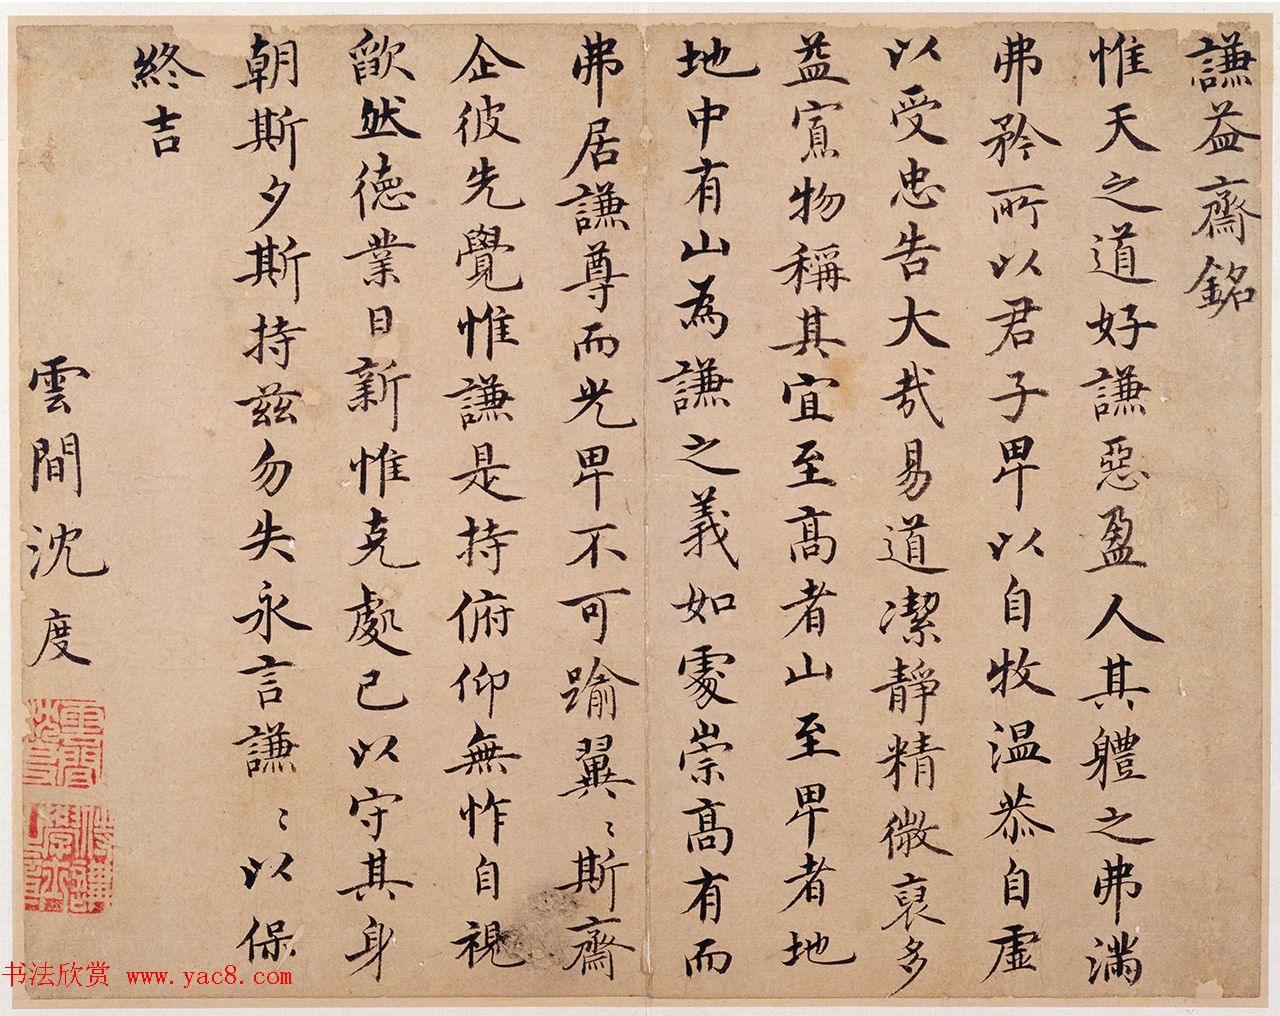 謙益齋銘
惟天之道好謙惡盈人其軆之弗滿
弗矜所以君子卑以自牧温恭自虛
以受忠告大哉易道潔靜精微裒多
益寡物稱其宜至高者山至卑者地
地中有山為謙之義如處崇高有而
弗居謙尊而光卑不可踰翼〻斯齋
企彼先覺惟謙是持俯仰無怍自視
歉然德業日新惟克處己以守其身
朝斯夕斯持兹勿失永言謙〻以保
終吉
雲間沈度
書法欣赏 www.yac8.com